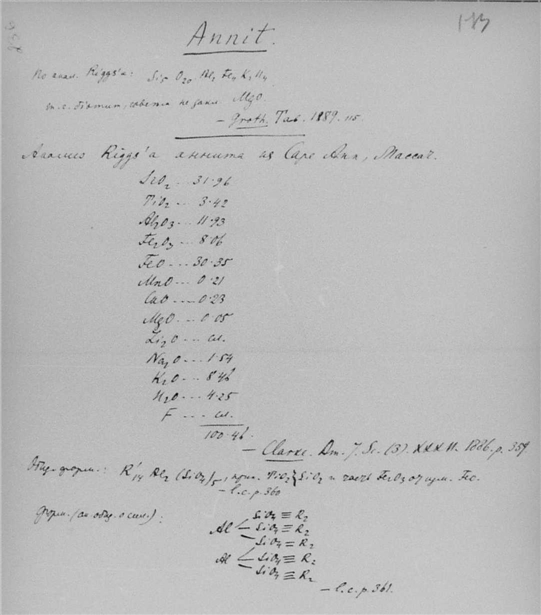 Annit.
По анал. Riggs'a: Si₅ O₂₀ Al₂ Fe₄ K₂ H₄
т.е. биотит, совсем не заκл. MgO
— Groth. Tab. 1889. 115.
Анализ Riggs'a аннита из Cape Ann, Массач.
SiO₂ -- 31.96
TiO₂ -- 3.42
Al₂O₃ -- 11.93
Fe₂O₃ -- 8.06
FeO --- 30.35
MnO -- 0.21
CaO --- 0.23
MgO -- 0.05
Li₂O -- сл.
Na₂O --- 1.54
K₂O -- 8.46
H₂O --- 4.25
F --- сл.
100.46.
— Clarke. Am. J. Sc. (3). XXXII. 1886. p. 359
Общ. форм.: R'₁₄ Al₂ (SiO₄)₅, прич. TiO₂ } SiO₂ и часть Fe₂O₃ Fe.
— l.c. p. 360
форм. :
SiO₄ ≡ R₂
Al — SiO₄ ≡ R₂
SiO₄ = R₂
Al SiO₄ ≡ R₂
SiO₄ ≡ R₂
— l.c. p. 361.